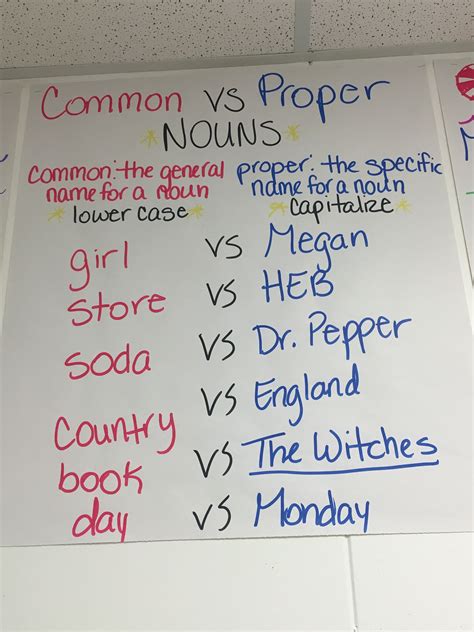 Common vs Proper
*NOUNS*
common: the general name for a noun
*lower case*
proper: the specific name for a noun
*capitalize*
girl vs Megan
store vs HEB
soda vs Dr. Pepper
country vs England
book vs The Witches
day vs Monday